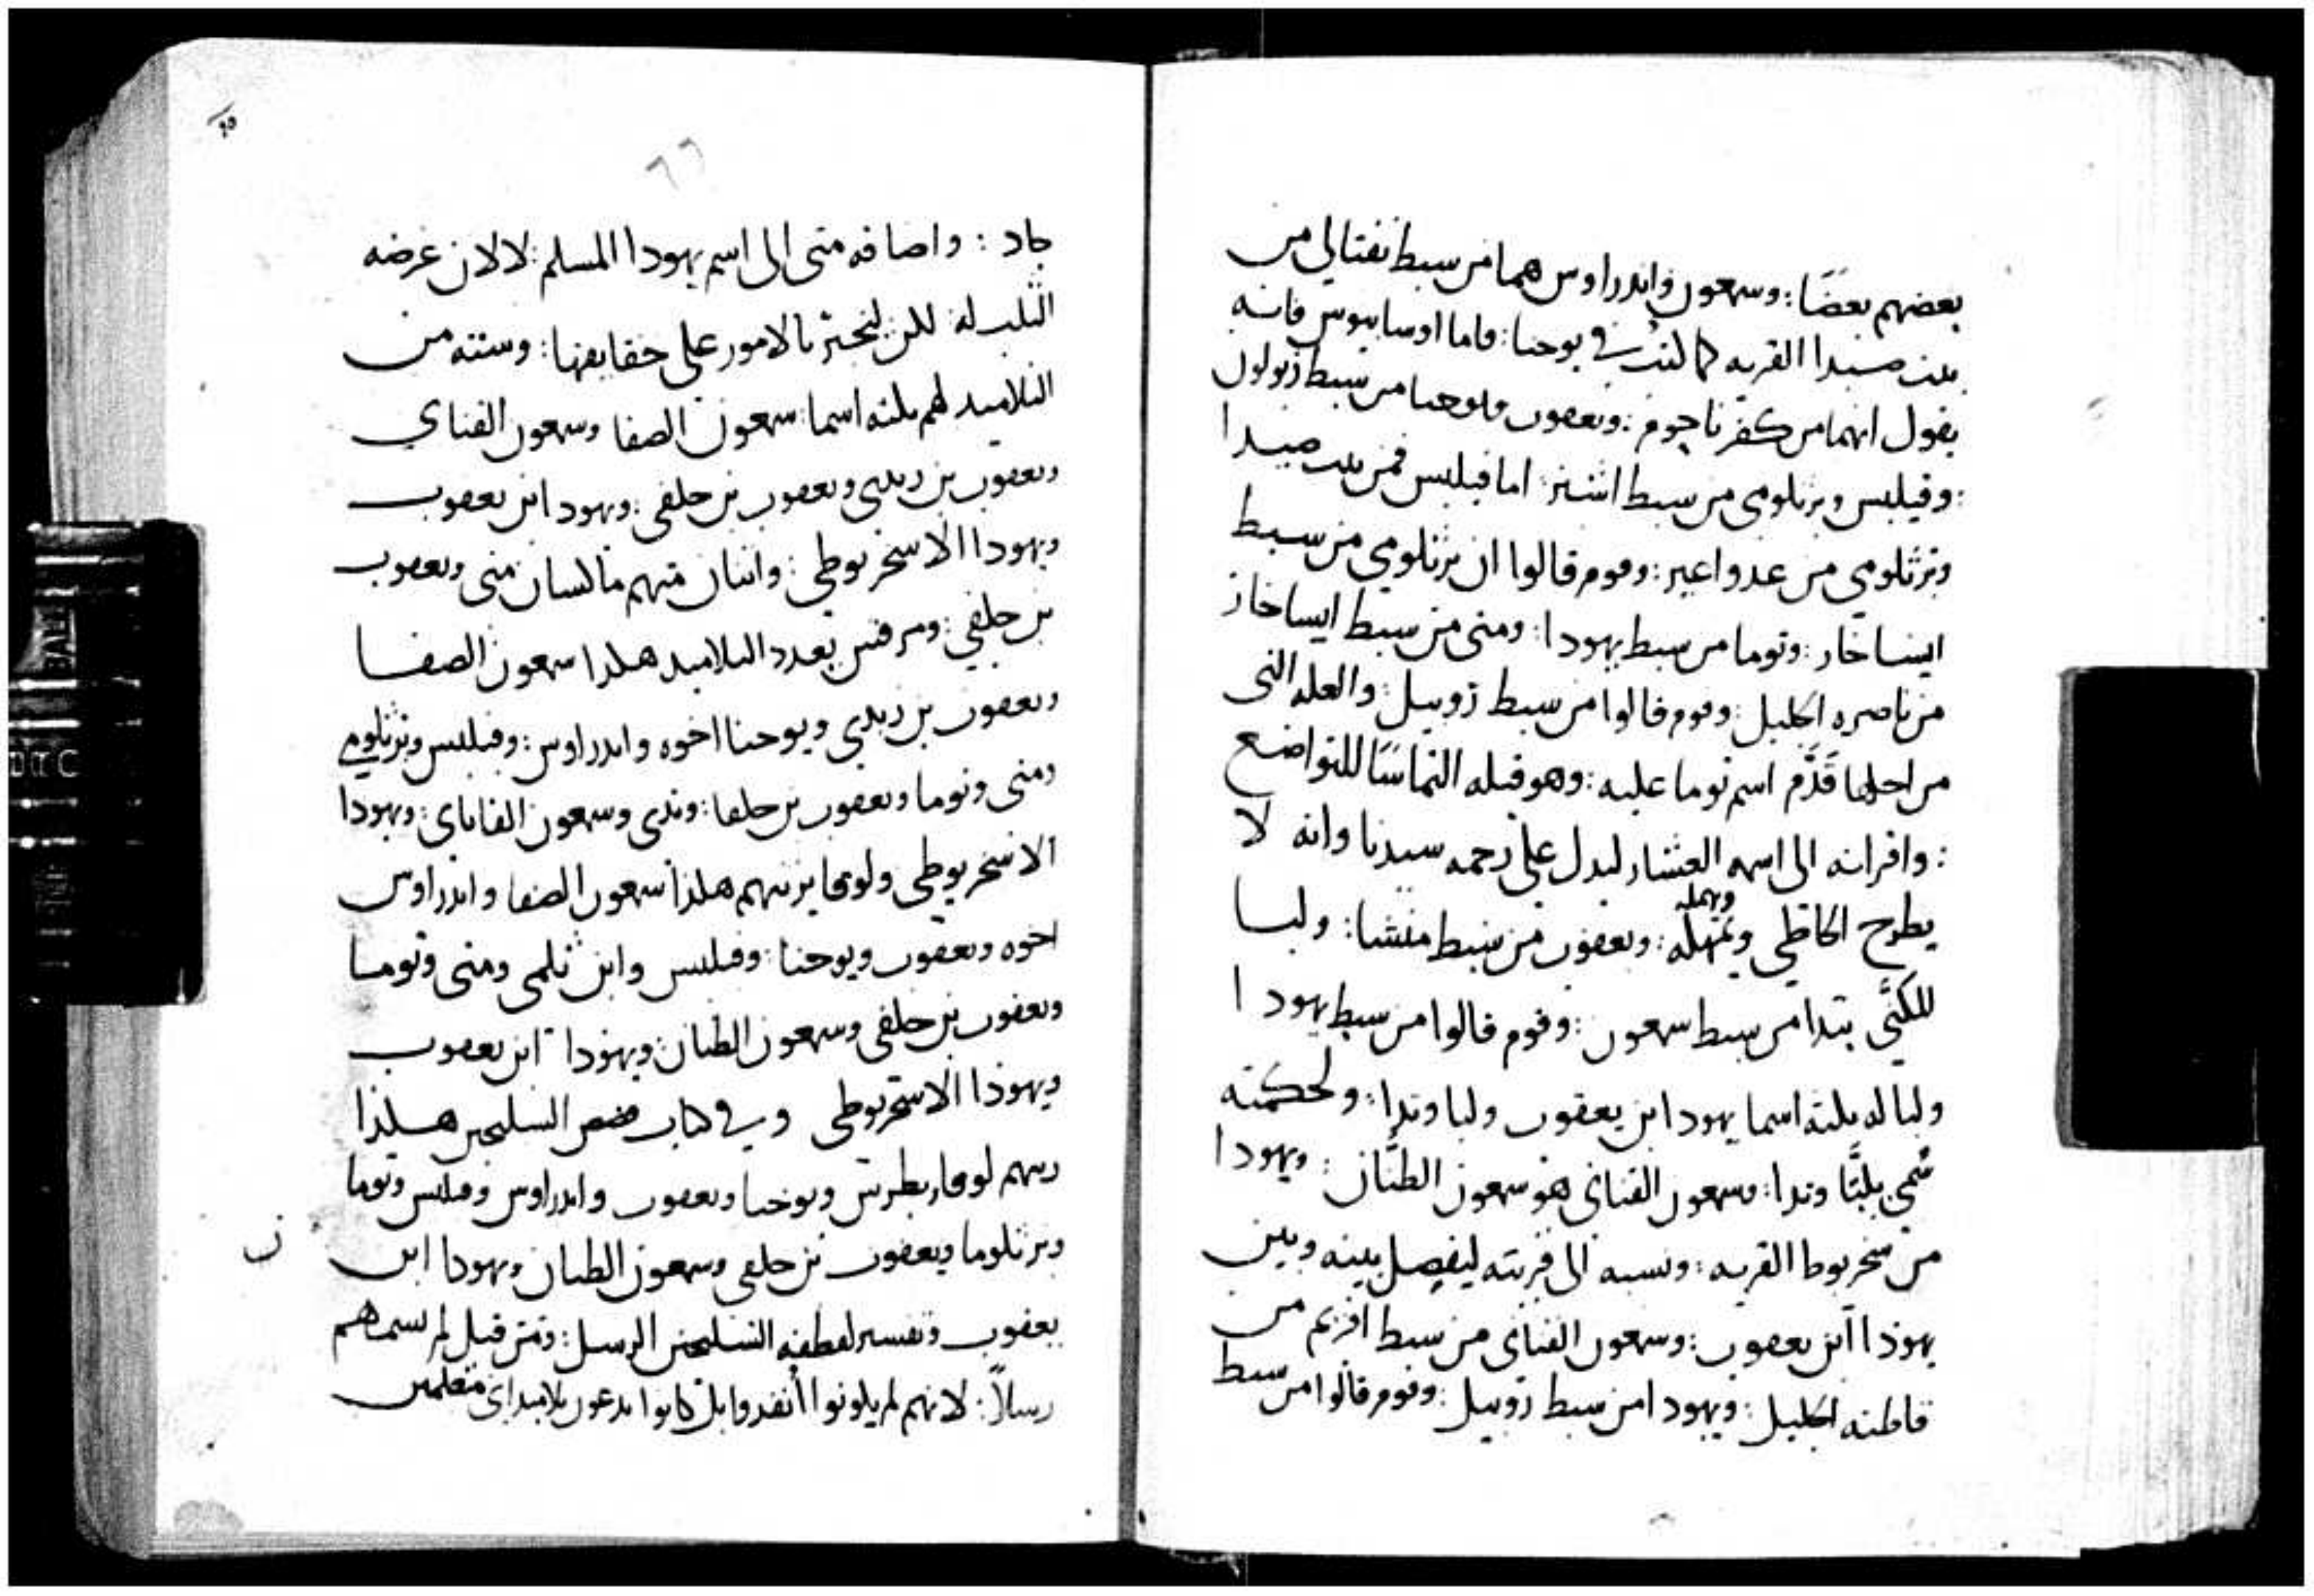 بعضهم بعضًا: وسمعون واندراوس هما من سبط نفتالي من
بيت صيدا القريه كما كتب في يوحنا: فاما اوسابيوس فانه
يقول انهما من كفرناحوم: ويعقوب ويوحنا من سبط زبولون
: وفيلبس وبرثلومي من سبط اشير: اما فيلبس فمن بيت صيدا
وبرثلومي من عدواعير: وقوم قالوا ان برثلومي من سبط
ايساخار: وتوما من سبط يهودا: ومتى من سبط ايساخار
من ناصره الجليل: وقوم قالوا من سبط روبيل: والعله التي
من اجلها قَدَّم اسم توما عليه: وهو قبله التماسًا للتواضع
: واقرانه الى اسمه العشار ليدل على رحمه سيدنا وانه لا
يطرح الخاطي ويمهله: ويعقوب من سبط منشا: ولبا
ويهمله
المكنَّى بتدا من سبط سمعون: وقوم قالوا من سبط يهودا
ولبا له ثلثه اسما يهودا ابن يعقوب ولبا وتدا: ولحكمته
سُمي بلبَّا وتدا: وسمعون القناني هو سمعون الطنَّان: ويهودا
من سخريوطا القريه: ونسبه الى قريته ليفصل بينه وبين
يهوذا ابن يعقوب: وسمعون القناني من سبط افريم من
قاطنه الجليل: ويهودا من سبط روبيل: وقوم قالوا من سبط
٦٦
جاد: واضافه متى الى اسم يهودا المسلم: لا لان غرضه
الثلب له لكن ليخبر بالامور على حقايقها: وسته من
التلاميد لهم ثلثه اسما: سمعون الصفا وسمعون القناي
ويعقوب بن زبدي ويعقوب بن حلفى: ويهودا بن يعقوب
ويهودا الاسخريوطي: واتنان منهم متى ويعقوب
بن حلفي: ومرقس يعدد التلاميد هكدا سمعون الصفا
ويعقوب بن زبدي ويوحنا اخوه واندراوس: وفيلبس وبرثلومي
ومتى وتوما ويعقوب بن حلفا: وتدى وسمعون القاناى: ويهودا
الاسخريوطي ولوقا يرتبهم هكذا سمعون الصفا واندراوس
اخوه ويعقوب ويوحنا: وفيلبس وابن ثلمى ومتى وتوما
ويعقوب بن حلفى وسمعون الطنان: ويهوذا ابن يعقوب
ويهوذا الاسخريوطى وفي كتاب قصص السليحين هكذا
رتبهم لوقا: بطرس ويوحنا ويعقوب واندراوس وفيلبس وتوما
وبرثلوما ويعقوب بن حلفى وسمعون الطنان ويهودا ابن
يعقوب وتفسير لفظه السليحين الرسل: ومتى قبل لم يسماهم
رسلاً: لانهم لم يكونوا انفدوا بل كانوا يدعون تلاميد اي متعلمين